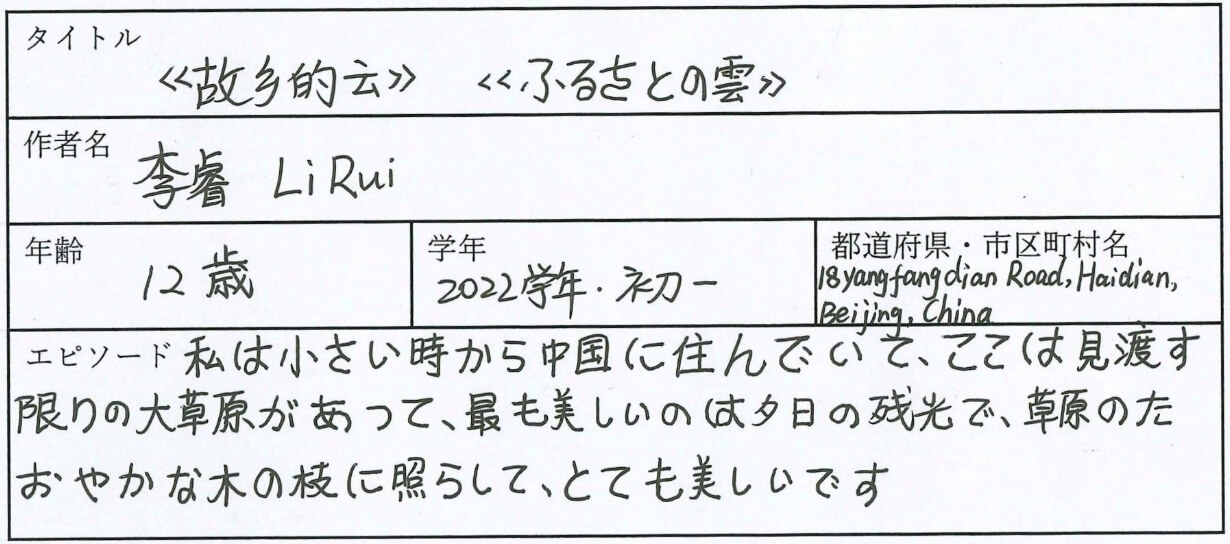 タイトル
≪故乡的云≫ ≪ふるさとの雲≫
作者名
李睿 Li Rui
年齢
12歳
学年
2022学年・初一
都道府県・市区町村名
18yangfangdian Road, Haidian,
Beijing, China
エピソード 私は小さい時から中国に住んでいて、ここは見渡す
限りの大草原があって、最も美しいのは夕日の残光で、草原のた
おやかな木の枝に照らして、とても美しいです